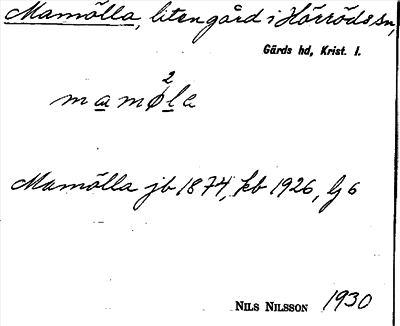 Mamölla, liten gård i Hörröds sn,
Gärds hd, Krist. l.
2
mamøla
Mamölla jb 1874, kb 1926, lj 6
NILS NILSSON 1930